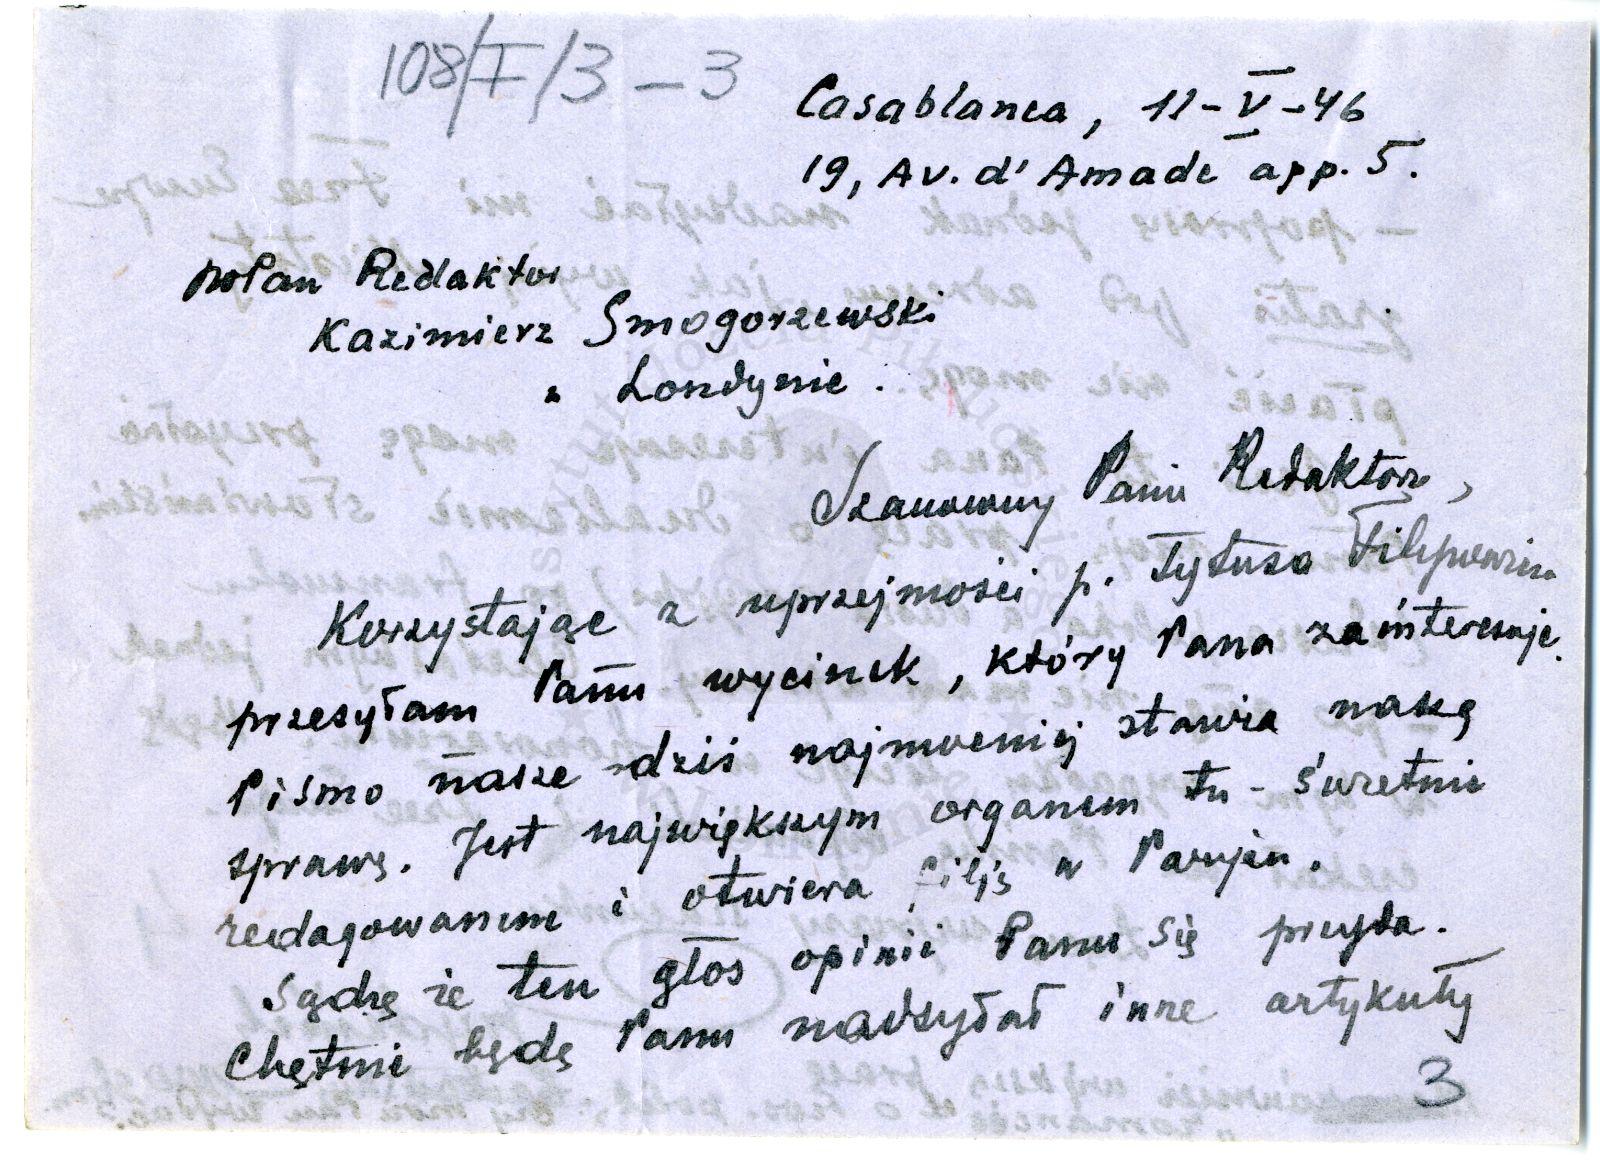 108/I/3 – 3
Casablanca, 11-V-46
19, Av. d'Amade app. 5.
WPan Redaktor
Kazimierz Smogorzewski
w Londynie.
Szanowny Panie Redaktorze,
Korzystając z uprzejmości p. Tytusa Filipowicza
przesyłam Panu wycinek, który Pana zainteresuje.
Pismo nasze dziś najmocniej stawia naszą
sprawę. Jest największym organem tu – świetnie
redagowanem i otwiera filję w Paryżu.
Sądzę że ten głos opinii Panu się przyda.
Chętnie będę Panu nadsyłał inne artykuły
3